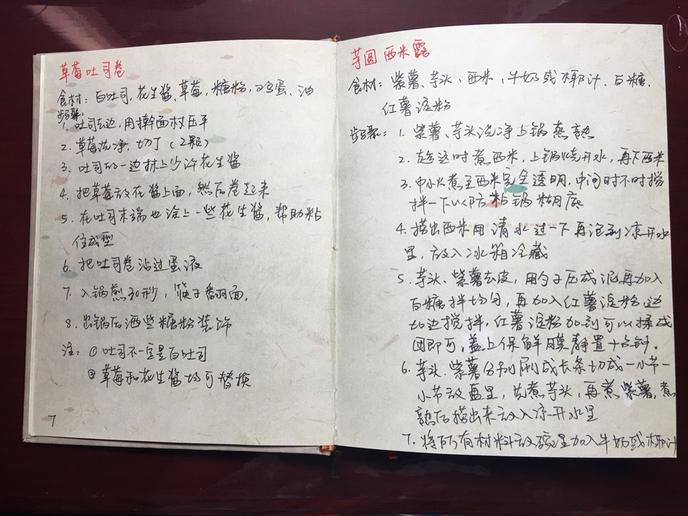 草莓吐司卷
食材：白吐司、花生酱、草莓，糖粉，鸡蛋、油
步骤：
1. 吐司去边，用擀面杖压平
2. 草莓洗净，切丁（2颗）
3. 吐司的一边抹上少许花生酱
4. 把草莓放花酱上面，然后卷起来
5. 在吐司末端也涂上一些花生酱，帮助粘
住成型
6. 把吐司卷沾过蛋液
7. 入锅煎30秒，筷子翻面。
8. 出锅后洒些糖粉装饰
注：①吐司不一定是白吐司
②草莓和花生酱均可替换
7
芋圆西米露
食材：紫薯、芋头、西米，牛奶或椰汁、白糖，
红薯淀粉
步骤：1. 紫薯、芋头洗净上锅蒸熟
2. 在这时煮西米，上锅烧开水，再下西米
3. 中小火煮至西米完全透明，中间时不时搅
拌一下以防粘锅糊底
4. 捞出西米用清水过一下再泡到凉开水
里，放入冰箱冷藏
5. 芋头、紫薯去皮，用勺子压成泥再加入
白糖拌均匀，再加入红薯淀粉边
加边搅拌，红薯淀粉加到可以揉成
团即可，盖上保鲜膜静置十分钟．
6. 芋头、紫薯分别制成长条切成一小节一
小节放盘里，先煮芋头，再煮紫薯，煮
熟后捞出来放入凉开水里
7. 将所有材料放碗里加入牛奶或椰汁